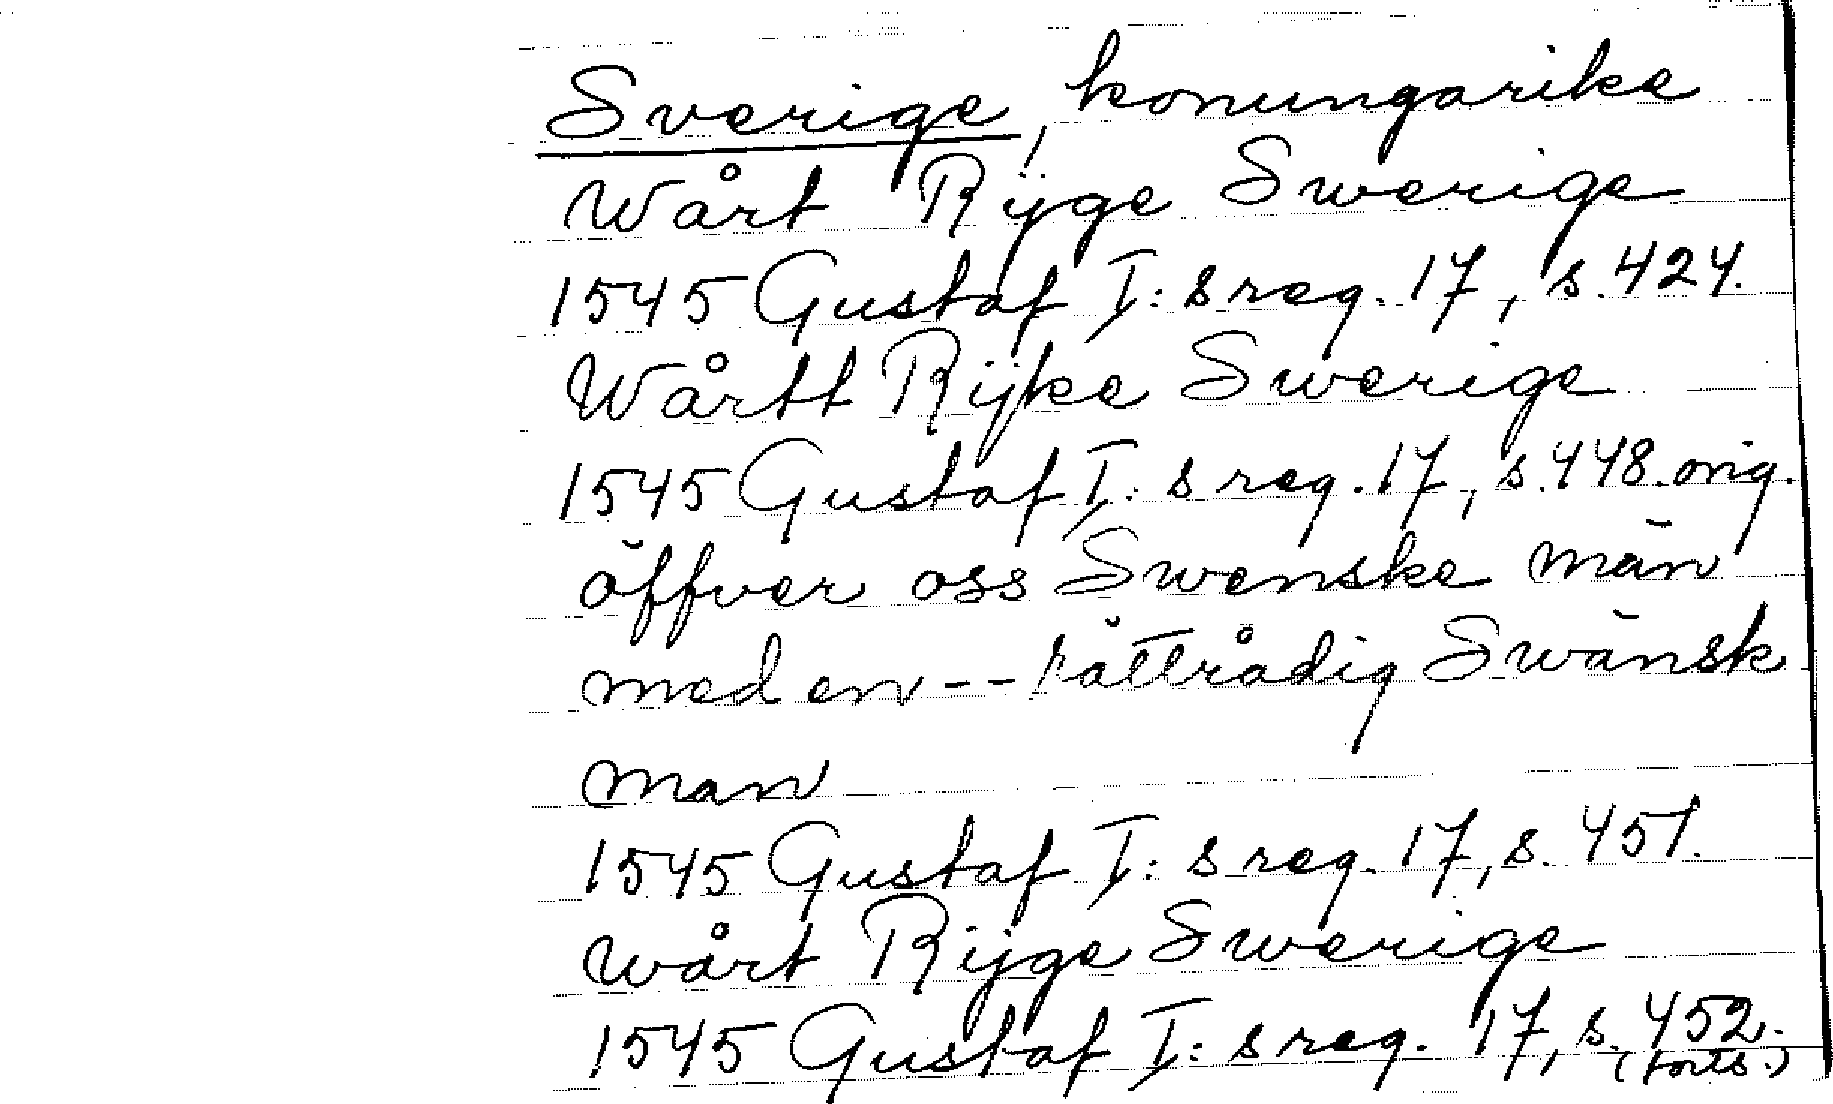 Sverige, konungarike
Wårt Rÿge Swerige
1545 Gustaf I:s reg. 17, s. 424.
Wårtt Rijke Swerige
1545 Gustaf I:s reg. 17, s. 448. orig.
öffver oss Swenske män
med en -- rättrådig Swänsk
man
1545 Gustaf I:s reg. 17, s. 451.
wårt Rijge Swerige
1545 Gustaf I:s reg. 17, s. 452.
(forts.)